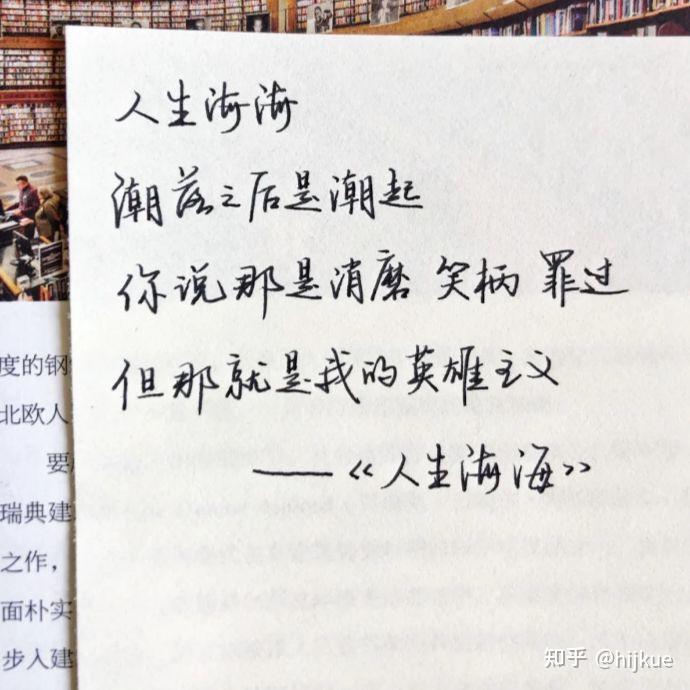 人生海海
潮落之后是潮起
你说那是消磨 笑柄 罪过
但那就是我的英雄主义
——《人生海海》
度的钢
北欧人
要
瑞典建
之作，
面朴实
步入建
知乎 @hijkue